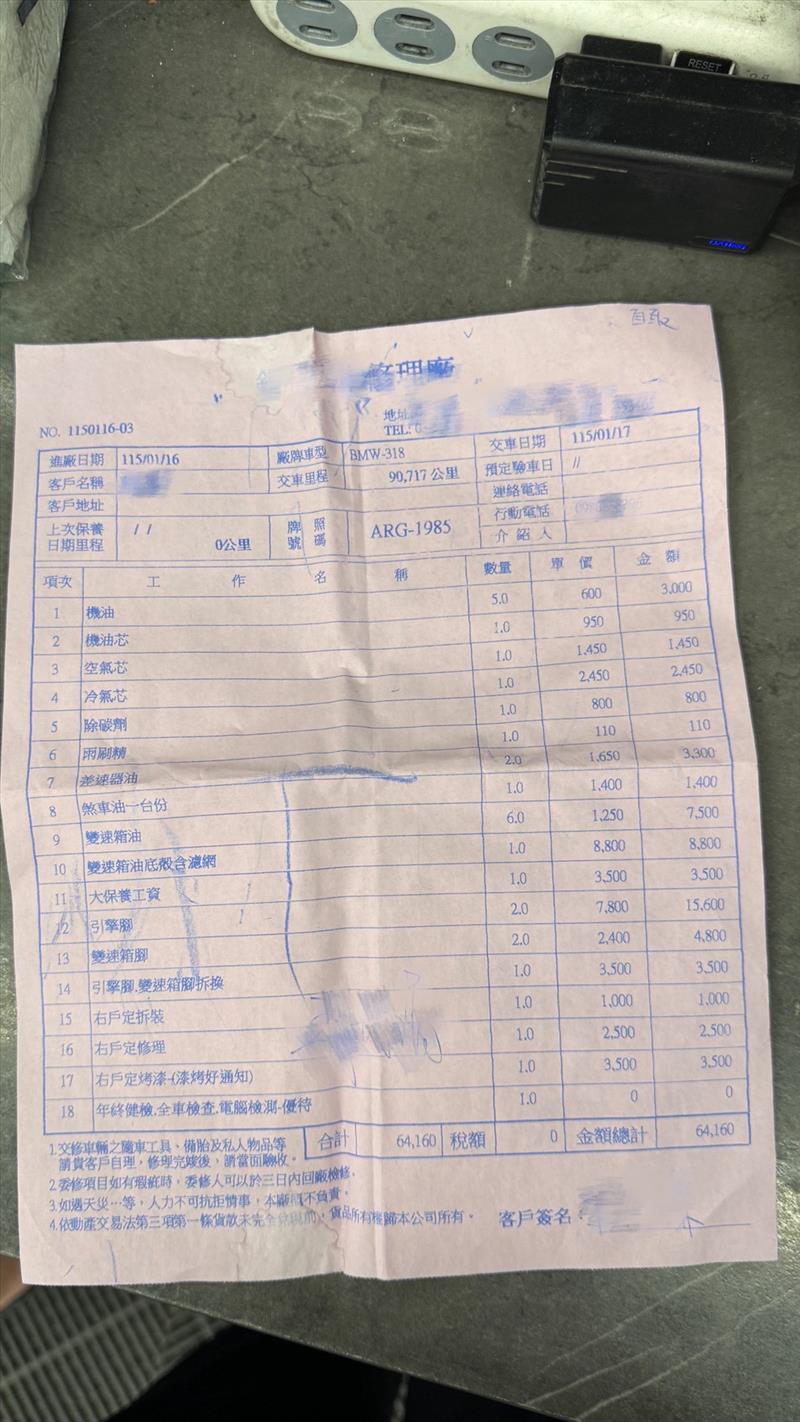 RESET
自取
修理廠
地址
NO. 1150116-03
TEL:
進廠日期 115/01/16 廠牌車型 BMW-318 交車日期 115/01/17
客戶名稱 交車里程 90,717 公里 預定驗車日 //
客戶地址 連絡電話
上次保養日期里程 / / 0公里 牌照號碼 ARG-1985 行動電話
介紹人
項次 工作名稱 數量 單價 金額
1 機油 5.0 600 3,000
2 機油芯 1.0 950 950
3 空氣芯 1.0 1,450 1,450
4 冷氣芯 1.0 2,450 2,450
5 除碳劑 1.0 800 800
6 雨刷精 1.0 110 110
7 差速器油 2.0 1,650 3,300
8 煞車油一台份 1.0 1,400 1,400
9 變速箱油 6.0 1,250 7,500
10 變速箱油底殼含濾網 1.0 8,800 8,800
11 大保養工資 1.0 3,500 3,500
12 引擎腳 2.0 7,800 15,600
13 變速箱腳 2.0 2,400 4,800
14 引擎腳.變速箱腳拆換 1.0 3,500 3,500
15 右戶定拆裝 1.0 1,000 1,000
16 右戶定修理 1.0 2,500 2,500
17 右戶定烤漆-(漆烤好通知) 1.0 3,500 3,500
18 年終健檢.全車檢查.電腦檢測-優待 1.0 0 0
合計 64,160 稅額 0 金額總計 64,160
1.交修車輛之隨車工具、備胎及私人物品等
請貴客戶自理，修理完竣後，請當面驗收。
2.委修項目如有瑕疵時，委修人可以於三日內回廠檢修。
3.如遇天災…等，人力不可抗拒情事，本廠概不負責。
4.依動產交易法第三項第一條貨款未完全兌現前，貨品所有權歸本公司所有。
客戶簽名：